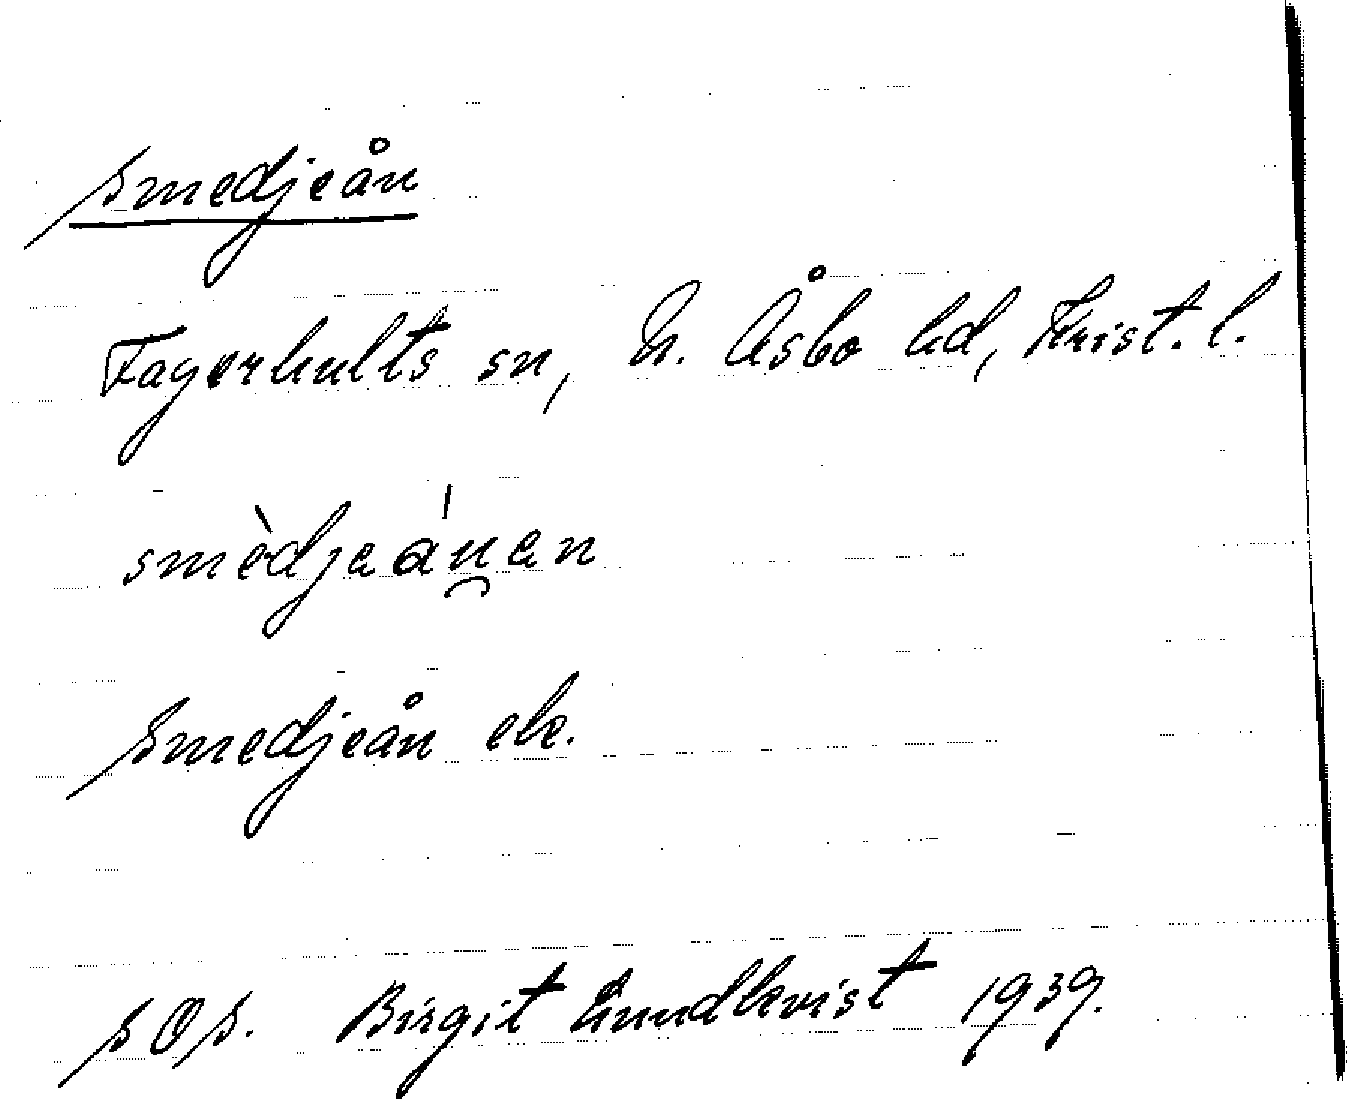 Smedjeån
Fagerhults sn, N. Åsbo hd, Krist. l.
smèdjeánen
Smedjeån ek.
SOS. Birgit Lundkvist 1939.